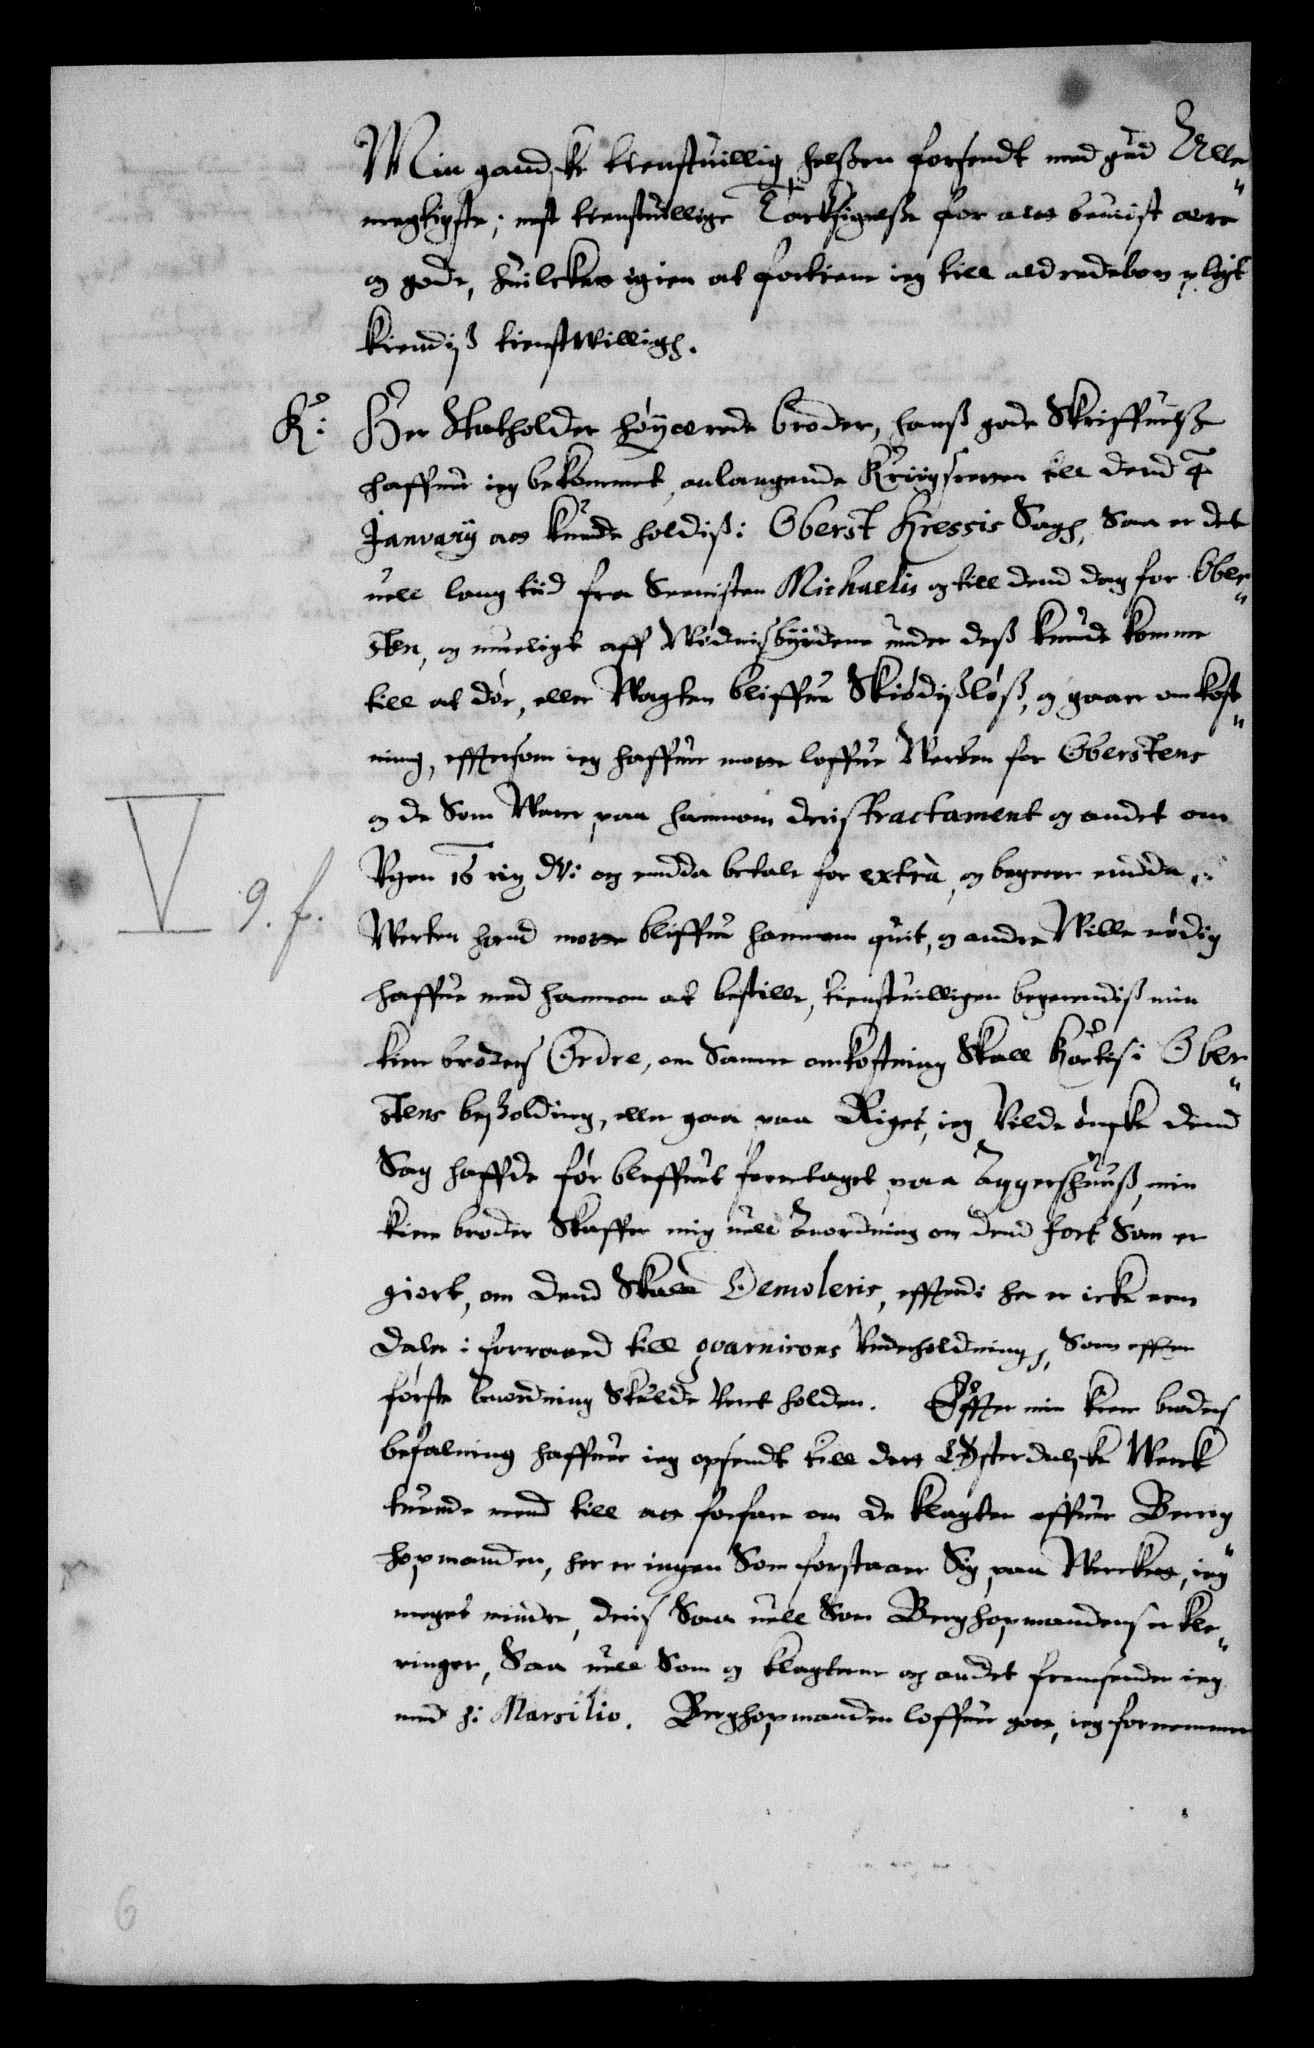 Min gandske tienstuillig helßen forsendt med gud Alle"
megtigste; nest tienstuillige Tacksigelße for alt beuist ære
og gode, huilcket igien at fortiene ieg till ald redebon pligt
kiendiß tienstwilligh.
K: Her Statholder höÿærede broder, hanß gode Skriffuelße
haffuer ieg bekommet, anlangende Kriigsretten till dend 4
Januarij at kunde holdiß i Oberst Kressis Sagh, Saa er det
uell lang tiid fra Seeniste Michaelis og till dend dag for Ober"
sten, og mueligt aff Widnisbyrdene under deß kunde komme
till at dör, eller Wagten bliffue Skiödißlöß, og gaar omkost"
ning, efftersom ieg haffuer motte loffue Werten for Obersten
og de Som Waar paa hannom deris tractament og andet om
Vgen 16 rix dlr: og endda betale for extra, og begierer endda
Werten hand motte bliffue hannom quit, og andre Wille nödig
haffue med hannom at bestille, tienstuilligen begierendiß min
kiere broders Ordre, om Samme omkostning Skall kortis i Ober"
stens besolding, eller gaa paa Riget, ieg Vilde önske dend
Sag haffde för bleffuet foretaget paa Aggershuuß, min
kiere broder Skaffer mig uell Anordning om dend fort Som er
giort, om dend Skall Demoleris, effterdi her er icke een
daler i forraad till gvarnisons Vnderholdning, Som effter
förste Anordning Skulde Veret holden. Effter min kiere broders
befalning haffuer ieg opsendt till det Österdalske Werck
tuende mend till at forfare om de klagter offuer Berrig"
hopmanden, her er ingen Som forstaar Sig paa Wercket, ieg
meget mindre, deris Saa uell Som Berghopmandens erkle"
ringer, Saa uell Som og klagterne og andet fremsender ieg
med h: Marsilio. Berghopmanden loffuer got, ieg fornemmer
V 9. f.
6